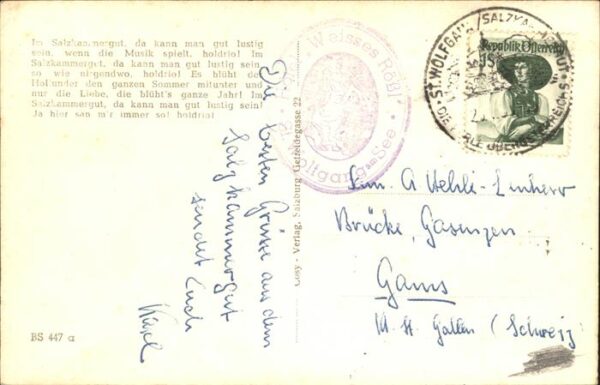 Im Salzkammergut, da kann man gut lustig
sein, wenn die Musik spielt, holdrio! Im
Salzkammergut, da kann man gut lustig sein
so wie nirgendwo, holdrio! Es blüht der
Hollunder den ganzen Sommer mitunter und
nur die Liebe, die blüht's ganze Jahr! Im
Salzkammergut, da kann man gut lustig sein!
Ja hier san m'r immer so! holdrio!
Die besten Grüsse aus dem
Salzkammergut
sendet Euch
BS 447 a
Cosy - Verlag, Salzburg Getreidegasse 22
Weisses Rößl
St. Wolfgang am See
ST. WOLFGANG SALZKAMMERGUT
Republik Österreich
1S
A Wehle-Linherr
Brücke, Gasenzen
Gams
Kt. St. Gallen (Schweiz)